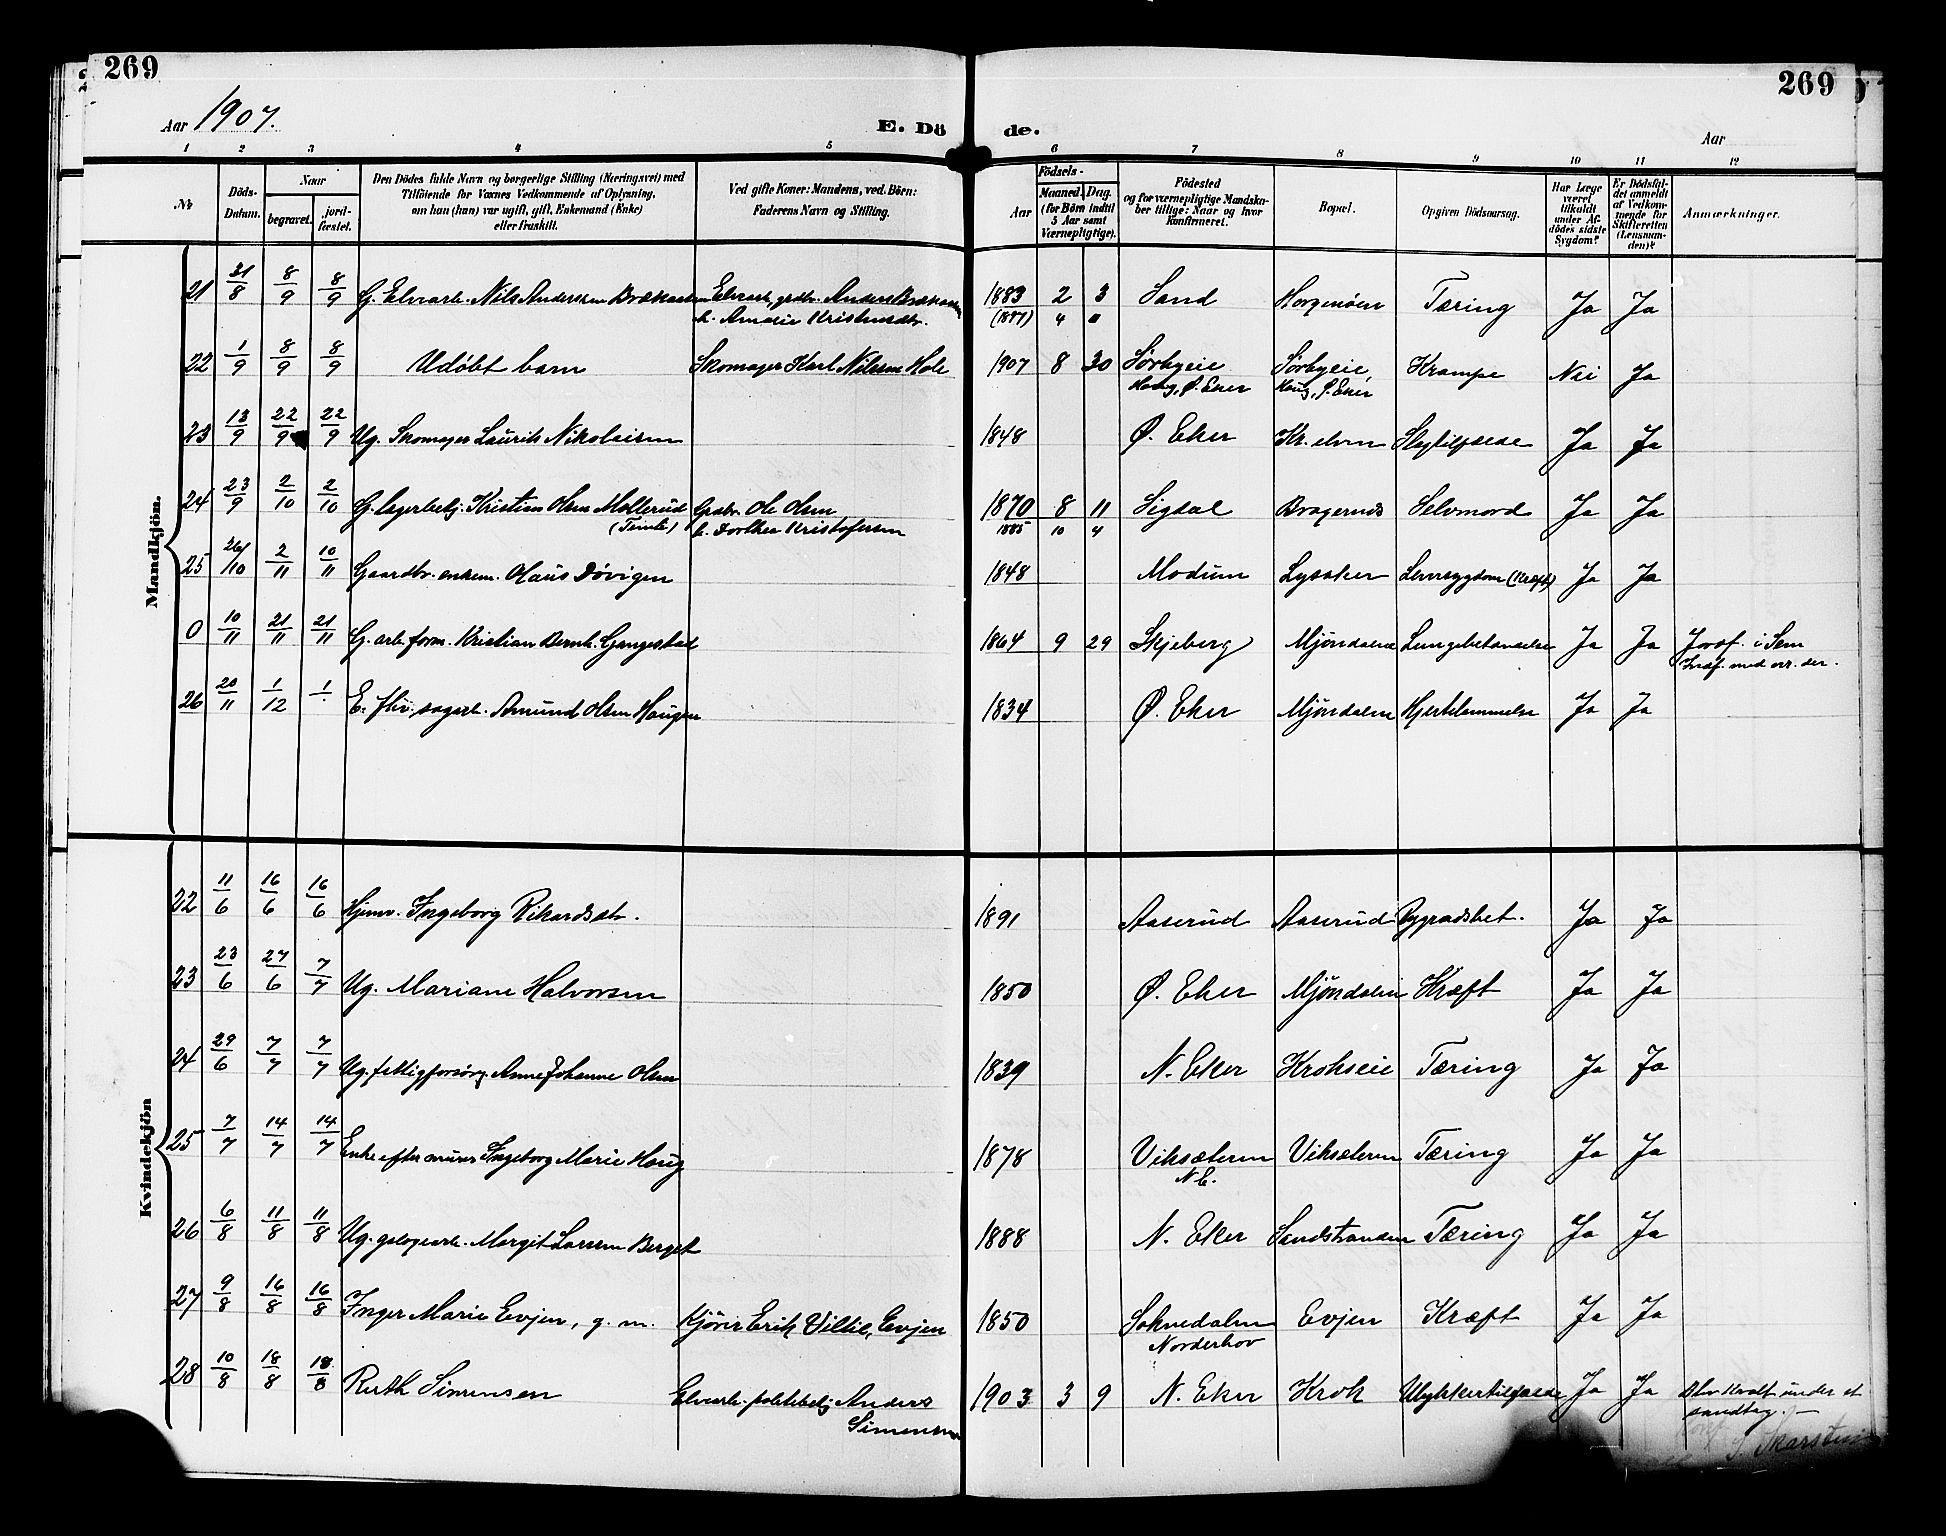 269
269
Aar 1907.
E. Dö de.
Aar
1 2 3 4 5 6 7 8 9 10 11 12
No
Döds-Datum.
Naar
begravet.
jord-festet.
Den Dödes fulde Navn og borgerlige Stilling (Næringsvei) med
Tilföiende for Voxnes Vedkommende af Oplysning,
om han (hun) var ugift, gift, Enkemand (Enke)
eller fraskilt.
Ved gifte Koner: Mandens, ved Börn:
Faderens Navn og Stilling.
Födsels-
Aar
Maaned. Dag.
(for Börn indtil
5 Aar samt
Værnepligtige).
Födested
og for værnepligtige Mandska-
ber tillige: Naar og hvor
konfirmeret.
Bopæl.
Opgiven Dödsaarsag.
Har Læge
været
tilkaldt
under Af-
dödes sidste
Sygdom?
Er Dödsfal-
det anmeldt
af Vedkom-
mende for
Skifteretten
(Lensman-
den)?
Anmærkninger.
Mandkjön.
21 31/8 8/9 8/9 G. Elvearb. Nils Andersen Brækaasen Elvearb. grdbr. Anders Brækaasen 1883 2 3 Sand Horgenöen Tæring Ja Ja
h. Amalie Kristensdtr. (1897) 4 "
22 1/9 8/9 8/9 Udöbt barn Skomager Karl Nilsen Hole 1907 8 30 Sörbyeie Sörbyeie, Krampe Nei Ja
Haug, Ø. Eker Haug, Ø. Eker
23 13/9 22/9 22/9 Ug. Skomager Laurits Nikolaisen 1848 Ø. Eker Kr. elven Slagtilfælde Ja Ja
24 23/9 2/10 2/10 G. lagerbetj. Kristian Olsen Mollerud Grdbr. Ole Olsen 1870 8 11 Sigdal Bragernes Selvmord Ja Ja
h. Dorthea Kristofersen 1885 10 4
25 26/10 2/11 10/11 Gaardbr. enkem. Olaus Dövigen 1848 Modum Lysaker Leversygdom (Kræft) Ja Ja
0 10/11 21/11 21/11 G. arb. form. Kristian Bernh. Gangestad 1864 9 29 Skjeberg Mjöndalen Lungebetændelse Ja Ja Indf. i Sem
26 20/11 1/12 1/ E. fhv. sagarb. Amund Olsen Haugen 1834 Ø. Eker Mjöndalen Hjertelammelse Ja Ja
Kvindekjön
22 11/6 16/6 16/6 Hjemv. Ingeborg Rikardsdtr. 1891 Aaserud Aaserud Rygradsbet. Ja Ja
23 23/6 27/6 7/7 Ug. Mariane Halvorsen 1850 Ø. Eker Mjöndalen Kræft Ja Ja
24 29/6 7/7 7/7 Ug. fattigforsörg. Anne Johanne Olsen 1839 N. Eker Krokseie Tæring Ja Ja
25 7/7 14/7 14/7 Enke efter murer Ingeborg Marie Haug 1878 Viksæteren Viksæteren Tæring Ja Ja
N. E.
26 6/8 11/8 11/8 Ug. galogearb. Margit Larsen Berget 1888 N. Eker Sandstranden Tæring Ja Ja
27 9/8 16/8 16/8 Inger Marie Evjen, g. m. Kjörer Erik Villie, Evjen 1850 Soknedalen Evjen Kræft Ja Ja
Norderhov
28 10/8 18/8 18/8 Ruth Simensen Elvearb. politibetj. Anders 1903 3 9 N. Eker Krok Ulykkestilfælde Ja Ja Blev kvalt under et
Simensen sandtag. —